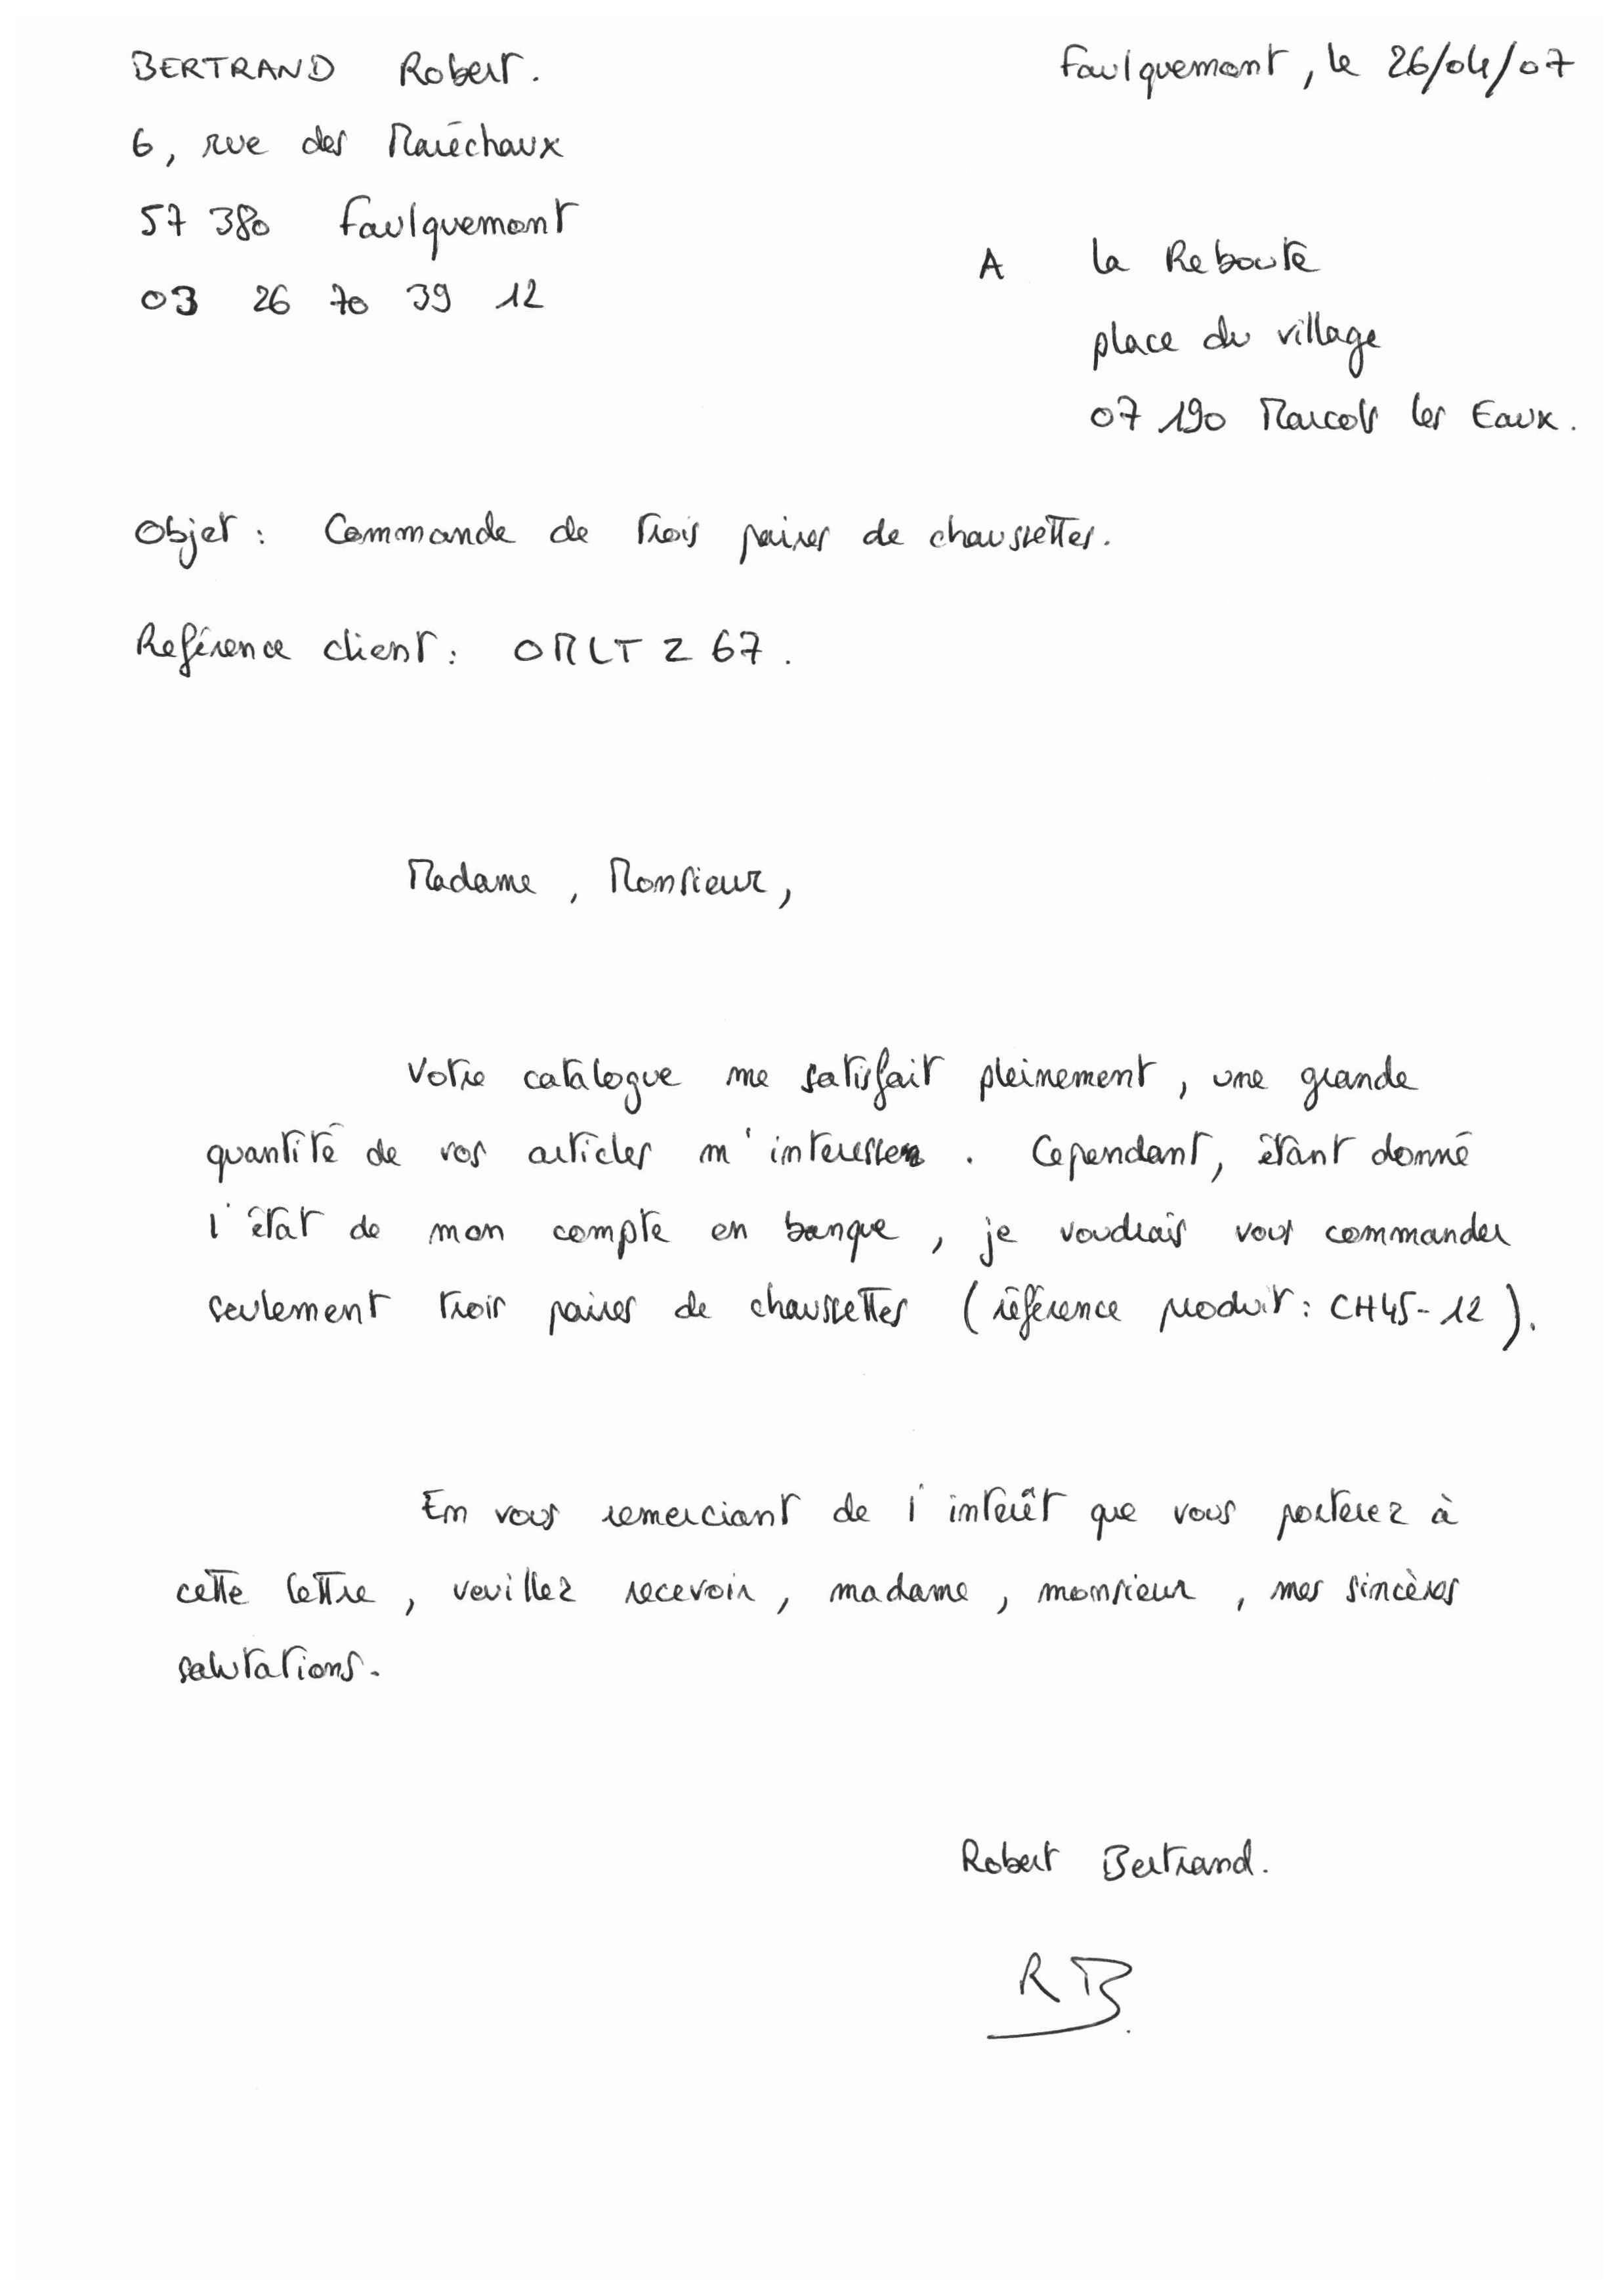 BERTRAND Robert.
Faulquemont, le 26/04/07
6, rue des Maréchaux
57 380 Faulquemont
03 26 70 39 12
A la Reboute
place du village
07 190 Marcols les Eaux.
Objet : Commande de trois paires de chaussettes.
Reférence client : OMLT Z 67.
Madame, Monsieur,
Votre catalogue me satisfait pleinement, une grande
quantité de vos articles m'interessen. Cependant, étant donné
l'état de mon compte en banque, je voudrais vous commander
seulement trois paires de chaussettes (référence produit : CH45-12).
En vous remerciant de l'interêt que vous porterez à
cette lettre, veuillez recevoir, madame, monsieur, mes sincères
salutations.
Robert Bertrand.
RB.